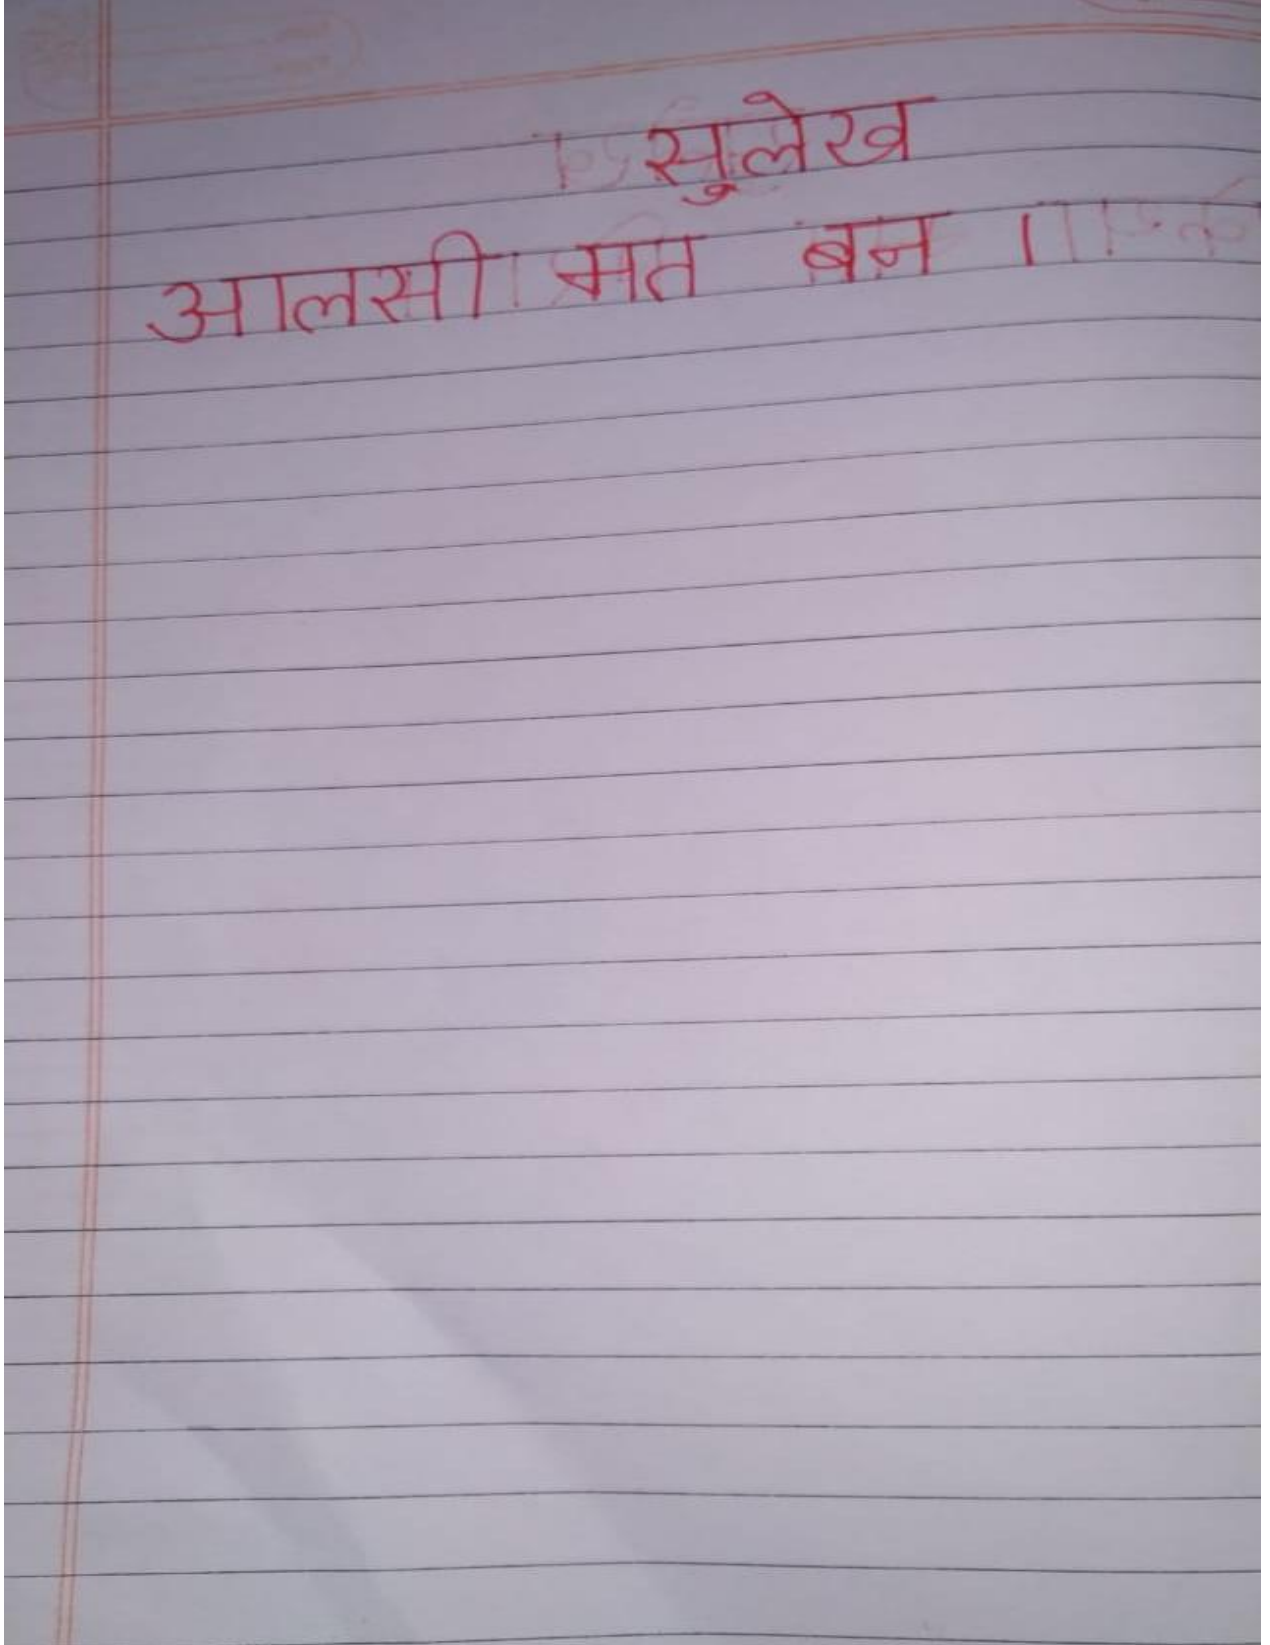 सुलेख
आलसी मत बन ।